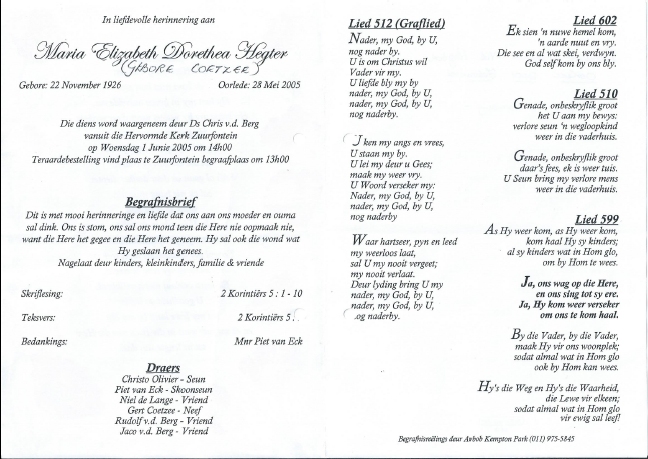 In liefdevolle herinnering aan
Maria Elizabeth Dorethea Hegter
(GEBORE COETZEE)
Gebore: 22 November 1926 Oorlede: 28 Mei 2005
Die diens word waargeneem deur Ds Chris v.d. Berg
vanuit die Hervormde Kerk Zuurfontein
op Woensdag 1 Junie 2005 om 14h00
Teraardebestelling vind plaas te Zuurfontein begraafplaas om 13h00
Begrafnisbrief
Dit is met mooi herinneringe en liefde dat ons aan ons moeder en ouma
sal dink. Ons is stom, ons sal ons mond teen die Here nie oopmaak nie,
want die Here het gegee en die Here het geneem. Hy sal ook die wond wat
Hy geslaan het genees.
Nagelaat deur kinders, kleinkinders, familie & vriende
Skriflesing: 2 Korintiërs 5 : 1 - 10
Teksvers: 2 Korintiërs 5 :
Bedankings: Mnr Piet van Eck
Draers
Christo Olivier – Seun
Piet van Eck - Skoonseun
Niel de Lange - Vriend
Gert Coetzee - Neef
Rudolf v.d. Berg – Vriend
Jaco v.d. Berg - Vriend
Lied 512 (Graflied)
Nader, my God, by U,
nog nader by.
U is om Christus wil
Vader vir my.
U liefde bly my by
nader, my God, by U,
nader, my God, by U,
nog naderby.
Jken my angs en vrees,
U staan my by.
U lei my deur u Gees;
maak my weer vry.
U Woord verseker my:
Nader, my God, by U,
nader, my God, by U,
nog naderby
Waar hartseer, pyn en leed
my weerloos laat,
sal U my nooit vergeet;
my nooit verlaat.
Deur lyding bring U my
nader, my God, by U,
nader, my God, by U,
.og naderby.
Lied 602
Ek sien 'n nuwe hemel kom,
'n aarde nuut en vry.
Die see en al wat skei, verdwyn.
God self kom by ons bly.
Lied 510
Genade, onbeskryflik groot
het U aan my bewys:
verlore seun 'n wegloopkind
weer in die vaderhuis.
Genade, onbeskryflik groot
daar's fees, ek is weer tuis.
U Seun bring my verlore mens
weer in die vaderhuis.
Lied 599
As Hy weer kom, as Hy weer kom,
kom haal Hy sy kinders;
al sy kinders wat in Hom glo,
om by Hom te wees.
Ja, ons wag op die Here,
en ons sing tot sy ere.
Ja, Hy kom weer verseker
om ons te kom haal.
By die Vader, by die Vader,
maak Hy vir ons woonplek;
sodat almal wat in Hom glo
ook by Hom kan wees.
Hy's die Weg en Hy's die Waarheid,
die Lewe vir elkeen;
sodat almal wat in Hom glo
vir ewig sal leef!
Begrafnisreëlings deur Avbob Kempton Park (011) 975-5845